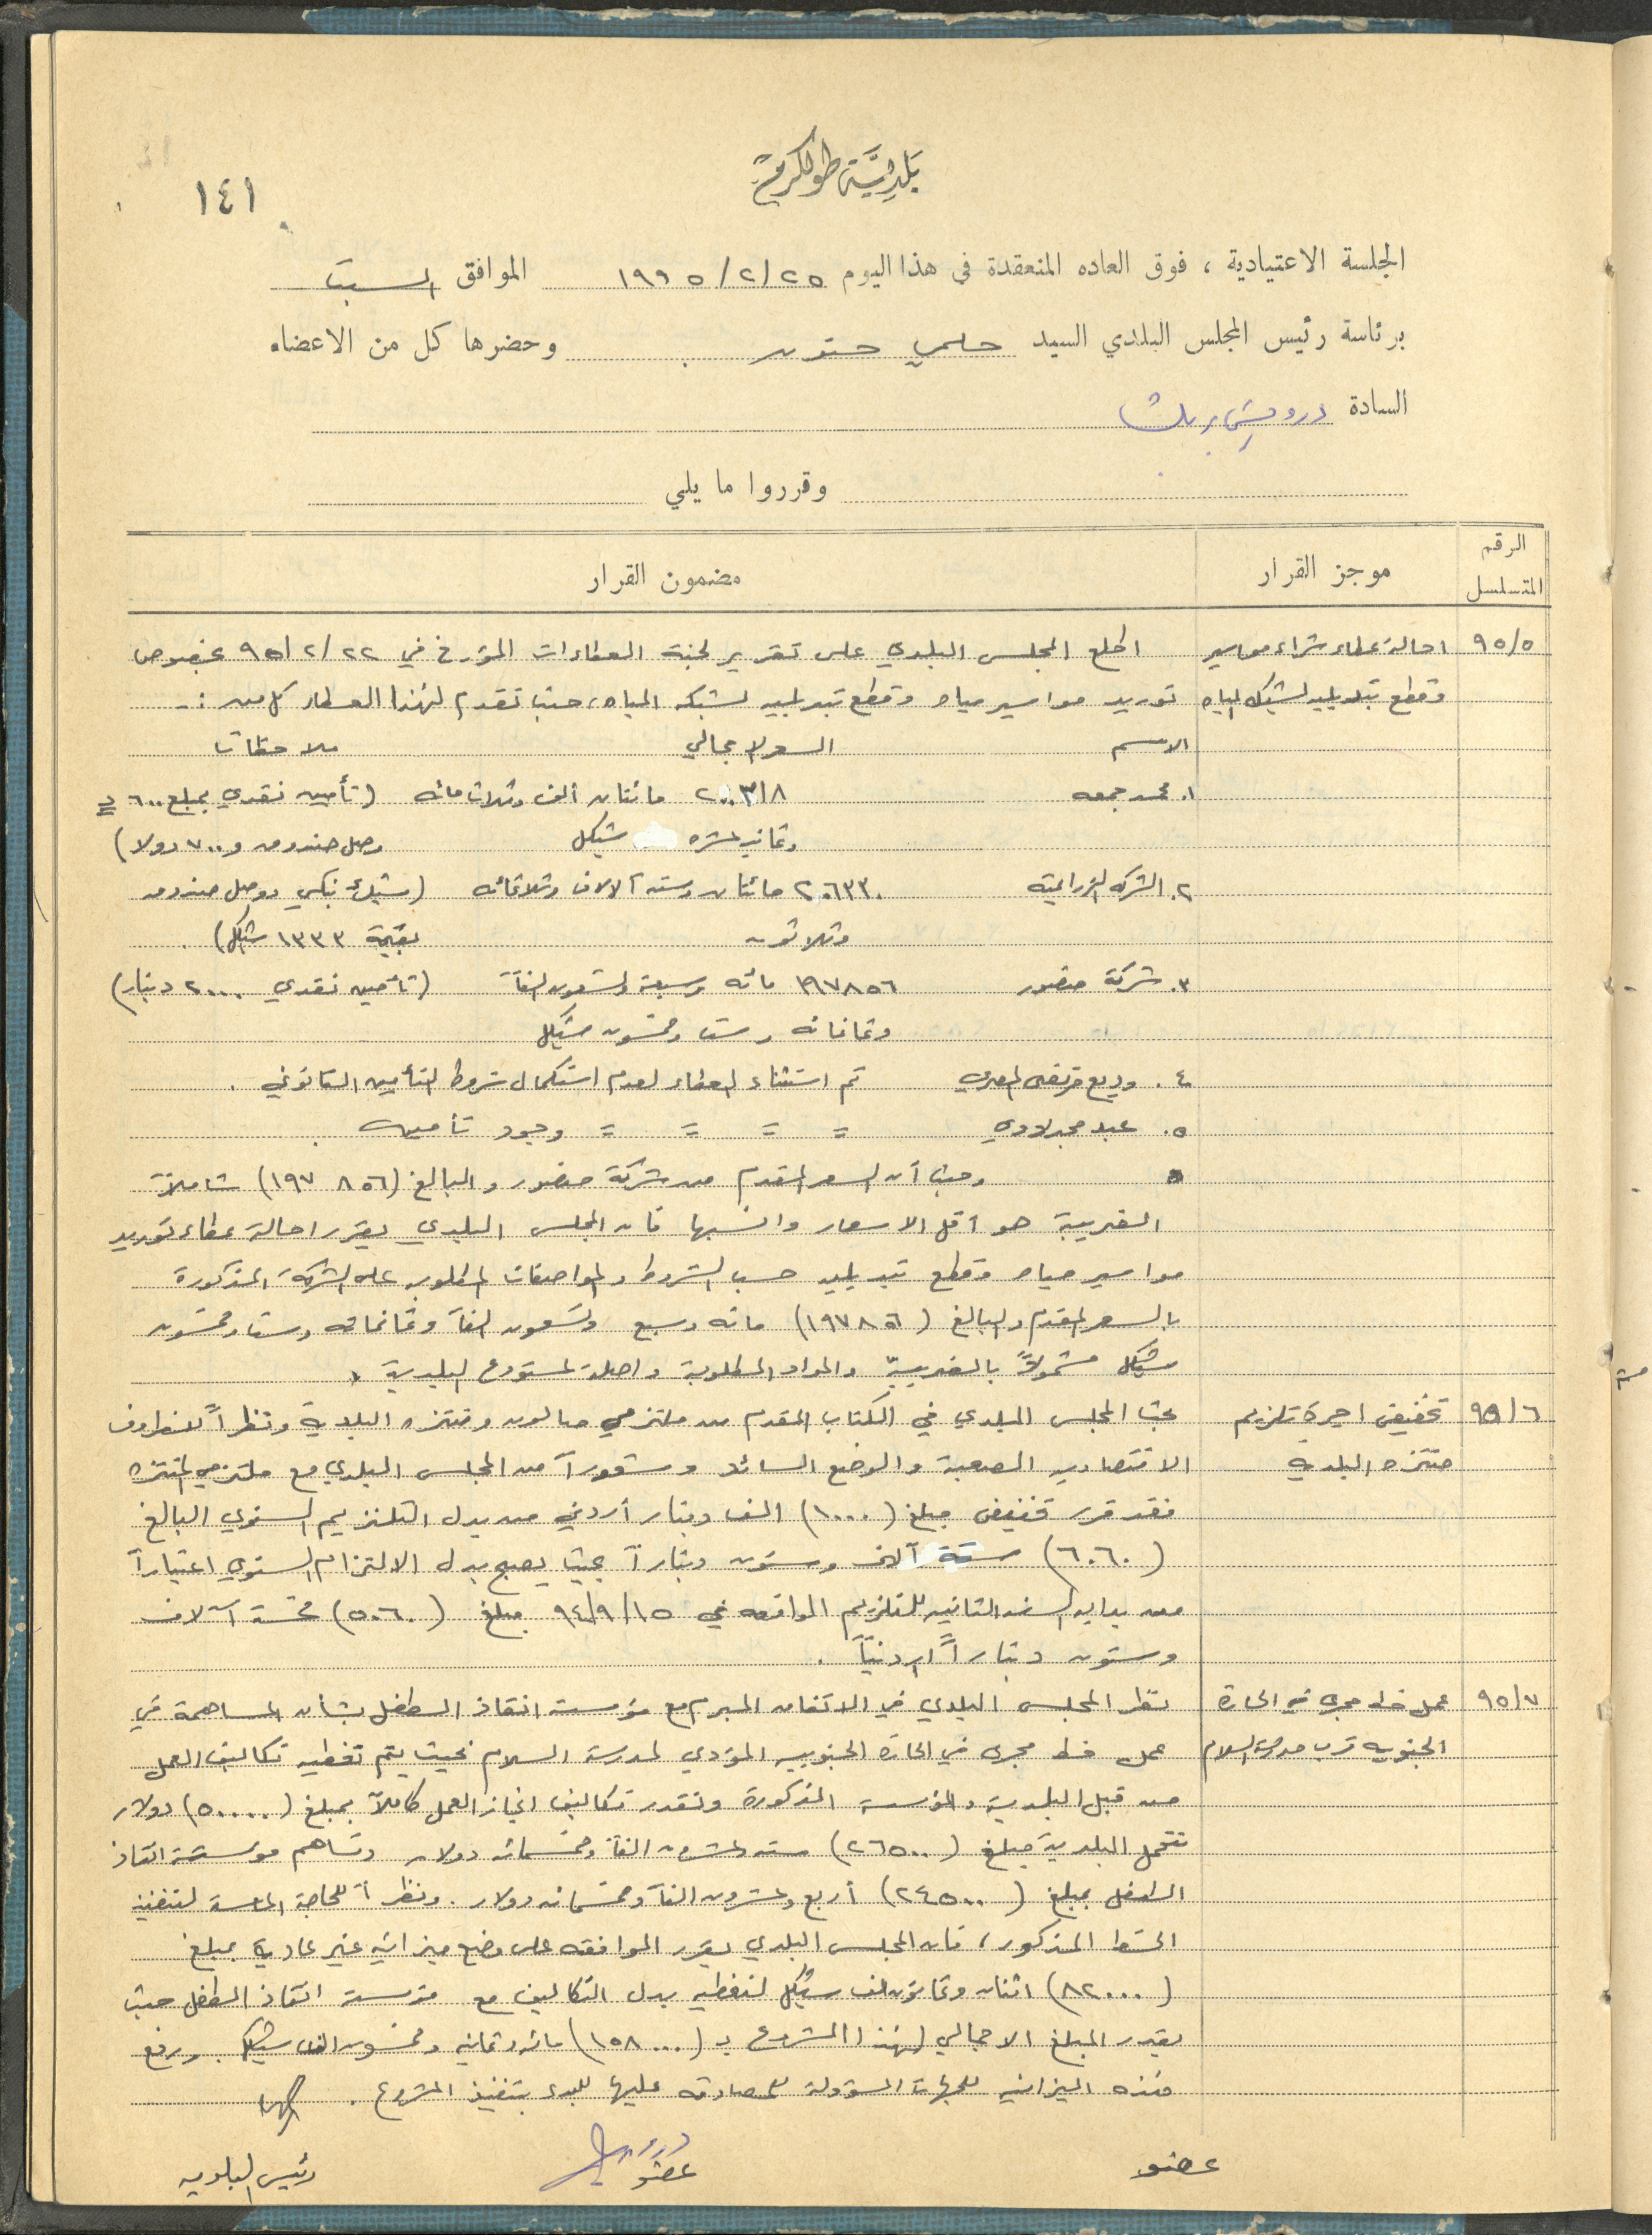 بلدية طولكرم
١٤١
الجلسة الاعتيادية ، فوق العاده المنعقدة في هذا اليوم ٢٥/٢/١٩٩٥ الموافق السبت
برئاسة رئيس المجلس البلدي السيد حلمي حنون وحضرها كل من الاعضاء
السادة درويش
وقرروا ما يلي
الرقم المتسلسل موجز القرار مضمون القرار
٩٥/٥ احالة عطاء شراء مواسير اطلع المجلس البلدي على تقرير لجنة العطاءات المؤرخ في ٢٢/٢/٩٥ بخصوص
وقطع تبديليه لشبكه المياه توريد مواسير مياه وقطع تبديليه لشبكه المياه، حيث تقدم لهذا العطاء كل من :-
الاسم السعر الاجمالي ملاحظات
١. محمد جمعه ٢٠٠٣١٨ مائتان ألف وثلاث مائه (تأمين نقدي بمبلغ ٦٠٠
وثمانيه عشره شيكل وصل صندوق و ٧٠٠ دولار)
٢. الشركه الزراعية ٢٠٦٣٣٠ مائتان وسته آلالاف وثلاثمائه (شيك بنكي ووصل صندوق
وثلاثون بقيمة ١٣٣٣ شيكل) .
٣. شركة منصور ١٩٧٨٥٦ مائه وسبعة وتسعون الفاً (تأمين نقدي ٢٠٠٠ دينار)
وثمانمائه وست وخمسون شيكل
٤. وديع مرتضى المصري تم استثناء العطاء لعدم استكمال شروط التأمين القانوني .
٥. عبد مجدلاوي = = = = وجود تأمين .
وحيث أن السعر المقدم من شركة منصور والبالغ (١٩٧٨٥٦) شاملاً
الضريبة هو أقل الاسعار وانسبها فان المجلس البلدي يقرر احالة عطاء توريد
مواسير مياه وقطع تبديليه حسب الشروط والمواصفات المطلوبه على الشركة المذكورة
بالسعر المقدم والبالغ (١٩٧٨٥٦) مائه وسبع وتسعون الفاً وثمانمائه وست وخمسون
شيكل مشمولاً بالضريبة والمواد المطلوبة واصلة لمستودع البلدية .
٩٥/٦ تخفيض اجرة تلزيم بحث المجلس البلدي في الكتاب المقدم من ملتزمي صالون ومنتزه البلدية ونظراً للظروف
منتزه البلدية الاقتصاديه الصعبة والوضع السائد وشعوراً من المجلس البلدي مع ملتزمي المنتزه
فقد قرر تخفيض مبلغ (١٠٠٠) الف دينار أردني من بدل التلزيم السنوي البالغ
(٦٠٦٠) ستة آلاف وستون ديناراً بحيث يصبح بدل الالتزام السنوي اعتباراً
من بدايه السنه الثانيه للتلزيم الواقعه في ١٥/٩/٩٤ مبلغ (٥٠٦٠) خمسة آلاف
وستون ديناراً اردنياً .
٩٥/٧ عمل خط مجرى في الحارة نظر المجلس البلدي في الاتفاق المبرم مع مؤسسة انقاذ الطفل بشأن المساهمة في
الجنوبيه قرب مدرسة السلام عمل خط مجرى في الحاره الجنوبيه المؤدي لمدرسة السلام بحيث يتم تغطيه تكاليف العمل
من قبل البلدية والمؤسسة المذكورة وتقدر تكاليف انجاز العمل كاملاً بمبلغ (٥٠٠٠٠) دولار
تتحمل البلدية مبلغ (٢٦٥٠٠) سته وعشرون الفاً وخمسمائه دولار وتساهم مؤسسة انقاذ
الطفل بمبلغ (٢٤٥٠٠) أربع وعشرون الفاً وخمسمائه دولار. ونظراً للحاجة الماسة لتنفيذ
الخط المذكور، فان المجلس البلدي يقرر الموافقه على وضع ميزانيه غير عادية بمبلغ
(٨٢٠٠٠) اثنان وثمانون الف شيكل لتغطيه بدل التكاليف مع مؤسسة انقاذ الطفل حيث
يقدر المبلغ الاجمالي لهذا المشروع بـ (١٥٨٠٠٠) مائه وثمانيه وخمسون الف شيكل ورفع
هذه الميزانيه للجهات المسؤولة للمصادقه عليها للبدء بتنفيذ المشروع .
عضو عضو رئيس البلديه